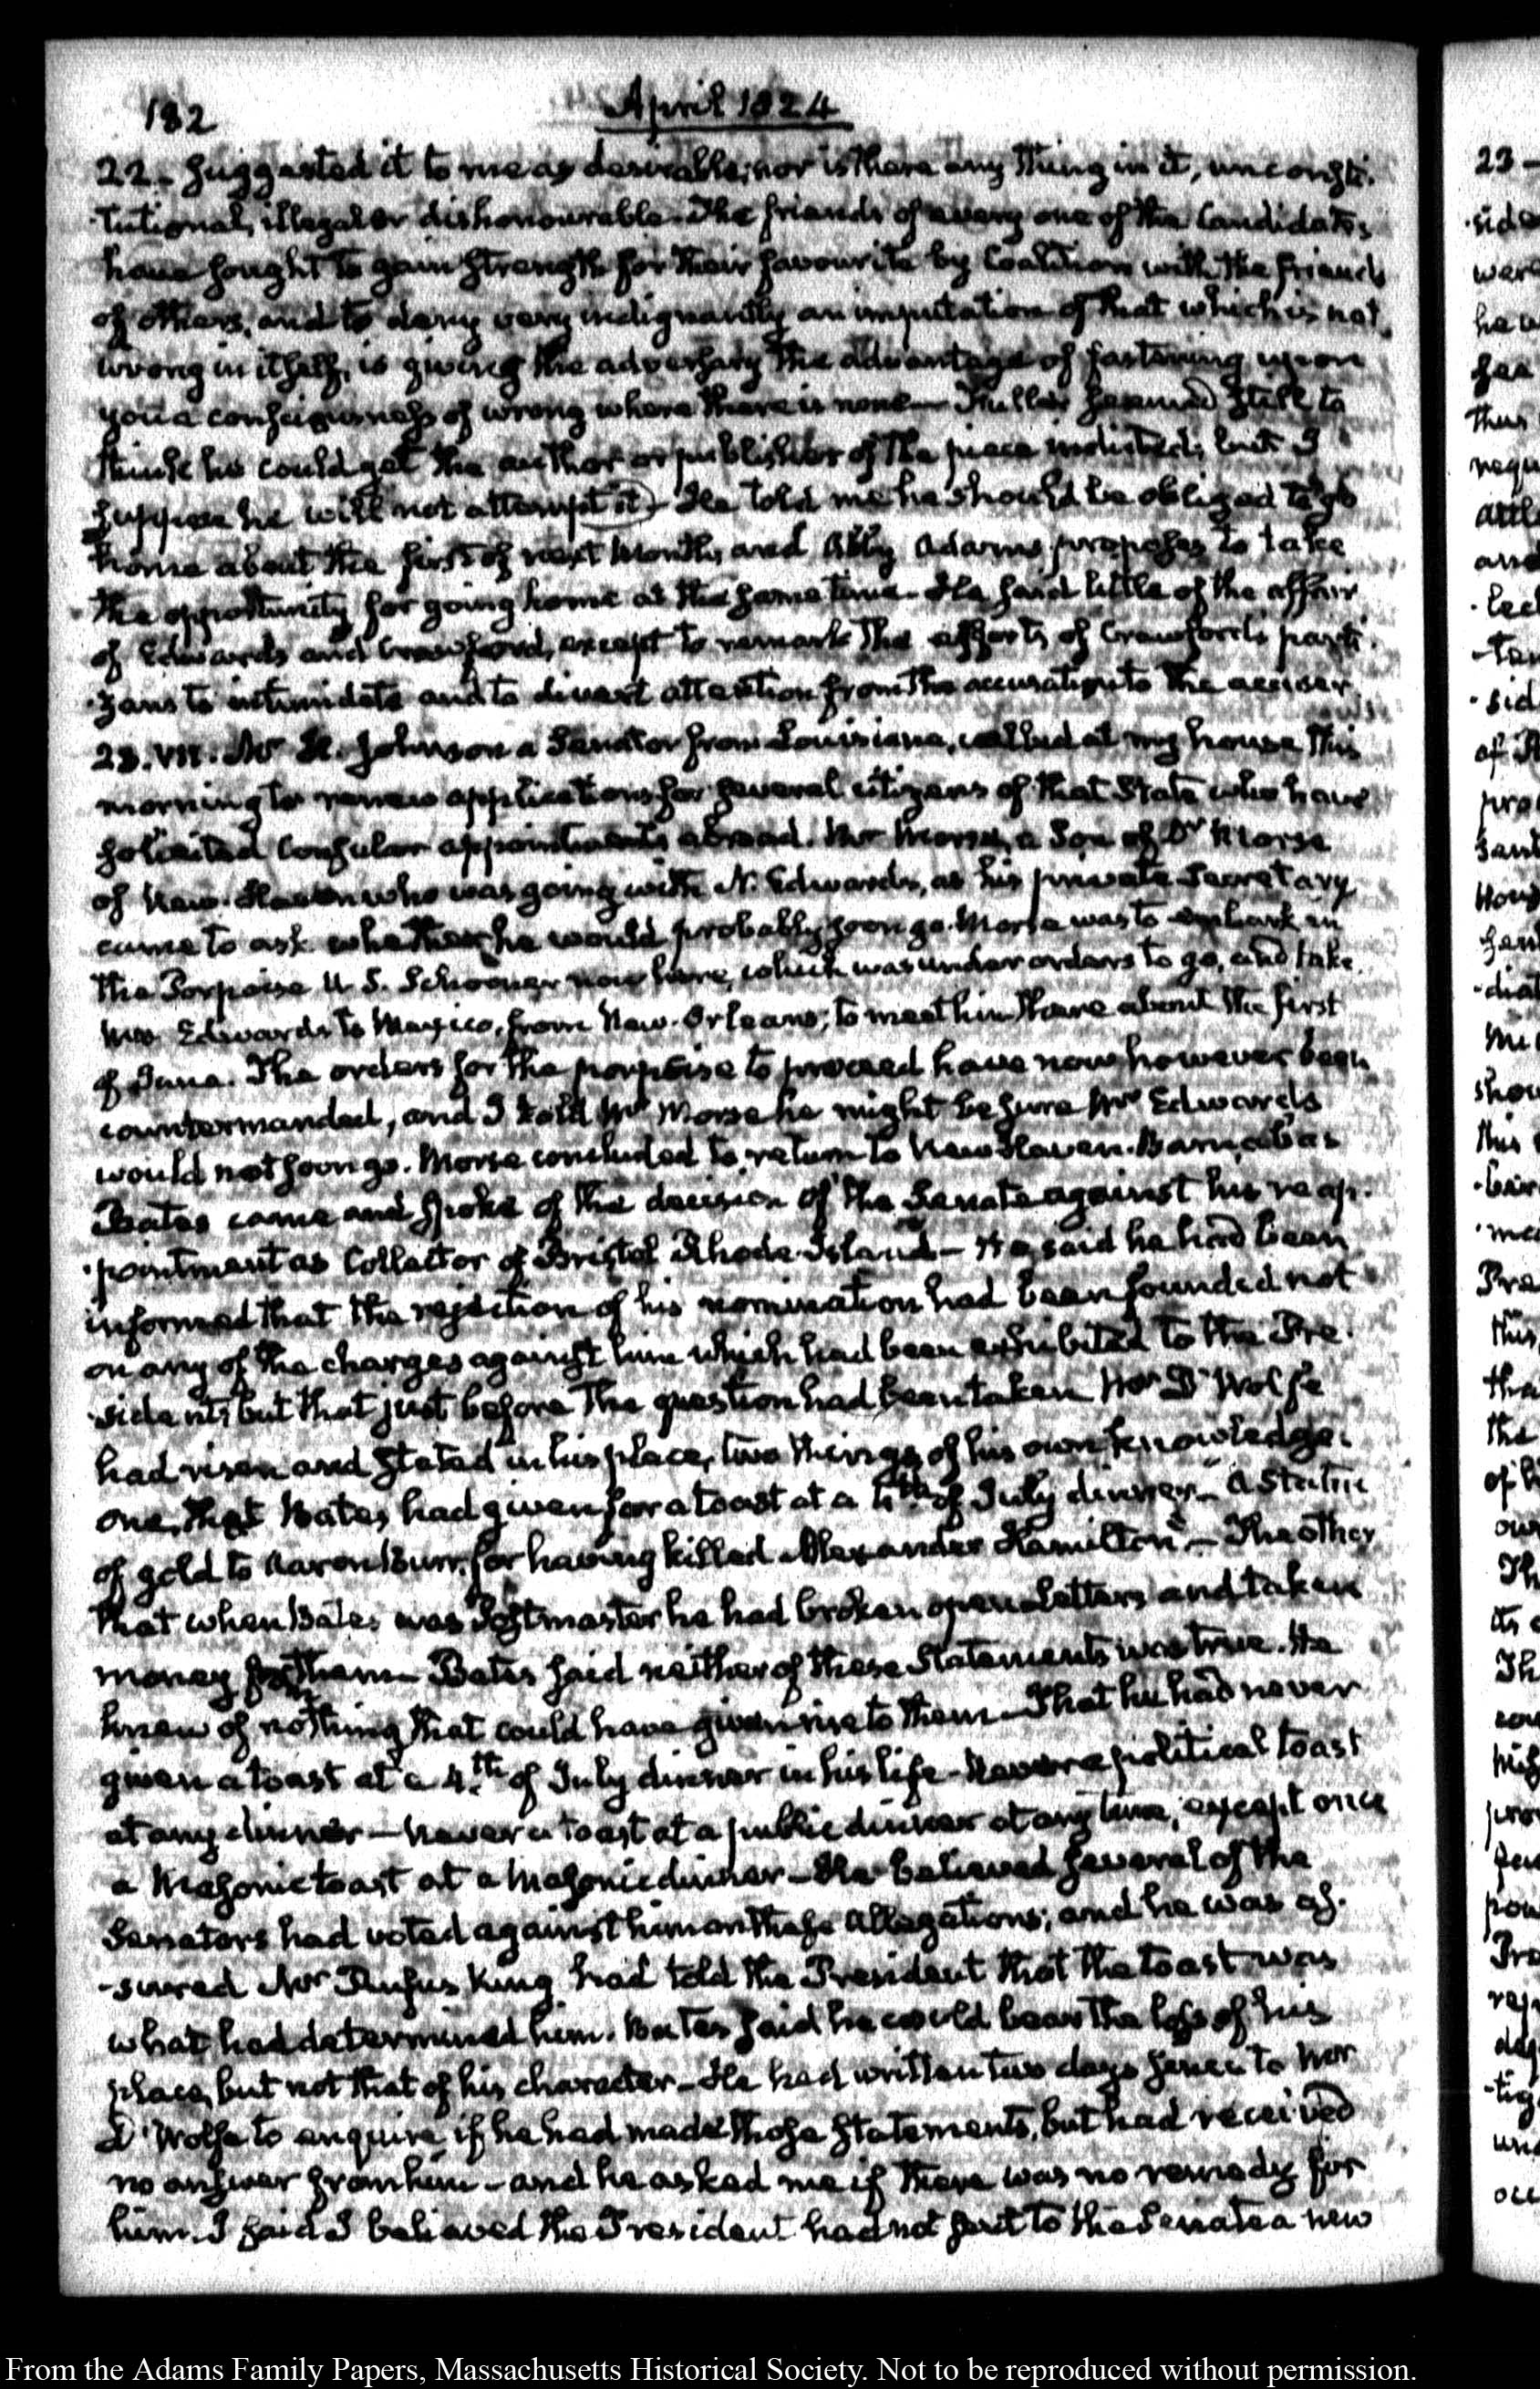 182
April 1824
22. suggested it to me as desirable; nor is there any thing in it, unconsti-
tutional, illegal or dishonourable. The friends of every one of the Candidates
have sought to gain strength for their favourite by Coalition with the friends
of others, and to deny very indignantly an imputation of that which is not
wrong in itself, is giving the adversary the advantage of fastening upon
you a consciousness of wrong where there is none— Fuller seemed still to
think he could get the author or publisher of the piece indicted; but I
suppose he will not attempt it— He told me he should be obliged to go
home about the first of next Month, and Abby Adams proposes to take
the opportunity for going home at the same time. He said little of the affair
of Edwards and Crawford, except to remark the efforts of Crawford's parti-
-zans to intimidate and to divert attention from the accusation to the accuser.
23. VII. Mr H. Johnson a Senator from Louisiana, called at my house this
morning to renew applications for several citizens of that State who have
solicited Consular appointments abroad. Mr Morse, a Son of Dr Morse
of New-Haven who was going with N. Edwards, as his private Secretary
came to ask whether he would probably soon go. Morse was to embark in
the Porpoise U. S. Schooner now here, which was under orders to go, and take
Mr Edwards to Mexico, from New-Orleans; to meet him there about the first
of June. The orders for the porpoise to proceed have now however been
countermanded, and I told Mr Morse he might be sure Mr Edwards
would not soon go. Morse concluded to return to New Haven. Barnabas
Bates came and spoke of the decision of the Senate against his reap-
-pointment as Collector of Bristol Rhode-Island— He said he had been
informed that the rejection of his nomination had been founded not
on any of the charges against him which had been exhibited to the Pre-
-sident; but that just before the question had been taken Mr D'Wolfe
had risen and stated in his place, two things of his own knowledge.
one, that Bates had given for a toast at a 4th of July dinner— "A Statue
of gold to Aaron Burr, for having killed Alexander Hamilton"— The other
that when Bates was Postmaster he had broken open letters and taken
money from them— Bates said neither of these Statements was true. He
knew of nothing that could have given rise to them— That he had never
given a toast at a 4th of July dinner in his life— Never a political toast
at any dinner— Never a toast at a public dinner at any time, except once
a Masonic toast at a Masonic dinner— He believed several of the
Senators had voted against him on these allegations; and he was as-
-sured Mr Rufus King had told the President that the toast was
what had determined him. Bates said he could bear the loss of his
place, but not that of his character— He had written two days since to Mr
D'Wolfe to enquire if he had made those statements, but had received
no answer from him— and he asked me if there was no remedy for
him. I said I believed the President had not sent to the Senate a new
From the Adams Family Papers, Massachusetts Historical Society. Not to be reproduced without permission.